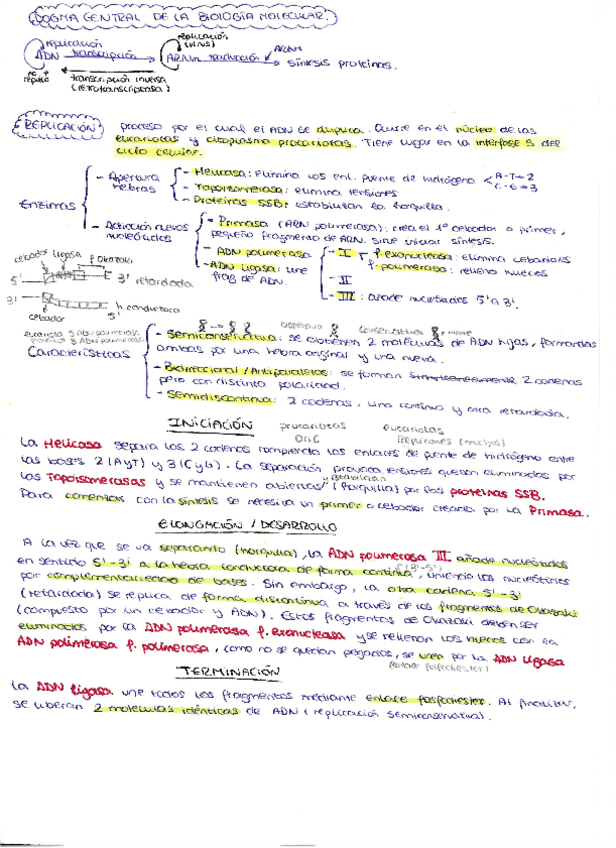 DOGMA CENTRAL DE LA BIOLOGÍA MOLECULAR.
replicación
replicación (virus)
ADN transcripción ARNm traducción síntesis proteínas.
transcripción inversa
(retrotranscriptasa)
REPLICACIÓN proceso por el cual el ADN se duplica. Ocurre en el núcleo de las
eucariotas y citoplasma procariotas. Tiene lugar en la interfase S del
ciclo celular.
Enzimas
- Apertura hebras
- Helicasa: elimina los enl. puente de hidrógeno A-T=2 C-G=3
- Topoisomerasa: elimina tensiones
- Proteínas SSB: estabilizan la horquilla.
- Adición nuevos nucleótidos
- Primasa (ARN polimerasa): crea el 1º cebador o primer,
pequeño fragmento de ARN. Sirve iniciar síntesis.
- ADN polimerasa
- I f. exonucleasa: elimina cebadores
f. polimerasa: rellena huecos
- II
- III: añade nucleótidos 5' a 3'.
- ADN ligasa: une
frag de ADN.
cebador ligasa f. okazaki
5' 3' retardada
3' 5' h. conductora
cebador
dispersiva conservativa
Características
- Semiconservativa: se obtienen 2 moléculas de ADN hijas, formadas
ambas por una hebra original y una nueva.
- Bidireccional / Antiparalelas: se forman 2 cadenas
pero con distinta polaridad.
- Semidiscontinua: 2 cadenas, una continua y otra retardada.
INICIACIÓN procariotas eucariotas
OriC Replicones (muchos)
La Helicasa separa las 2 cadenas rompiendo los enlaces de puente de hidrógeno entre
las bases 2 (A y T) y 3 (C y G). La separación provoca tensiones que son eliminadas por
las Topoisomerasas y se mantienen abiertas (horquilla) por las proteínas SSB.
Para comenzar con la síntesis se necesita un primer o cebador creado por la Primasa.
ELONGACIÓN / DESARROLLO
A la vez que se va separando (horquilla), la ADN polimerasa III añade nucleótidos
en sentido 5'-3' a la hebra conductora de forma continua (3'-5'), uniendo los nucleótidos
por complementariedad de bases. Sin embargo, la otra cadena 5'-3'
(retardada) se replica de forma discontinua a través de los fragmentos de Okazaki
(compuesto por un cebador y ADN). Estos fragmentos de Okazaki deben ser
eliminados por la ADN polimerasa f. exonucleasa y se rellenan los huecos con la
ADN polimerasa f. polimerasa, como no se quedan pegados, se unen por la ADN ligasa
(enlace fosfodiester)
TERMINACIÓN
La ADN ligasa une todos los fragmentos mediante enlace fosfodiester. Al finalizar,
se liberan 2 moléculas idénticas de ADN (replicación semiconservativa).